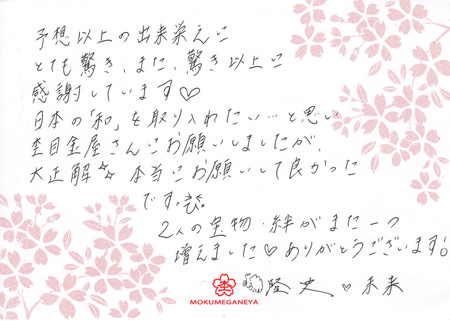 予想以上の出来栄えに
とても驚き、また、驚き以上に
感謝しています♡
日本の「和」を取り入れたい…と思い
杢目金屋さんにお願いしましたが、
大正解☆☆ 本当にお願いして良かった
です。
2人の宝物・絆がまた一つ
増えました♡ありがとうございます!
隆史 ♡ 未来
MOKUMEGANEYA